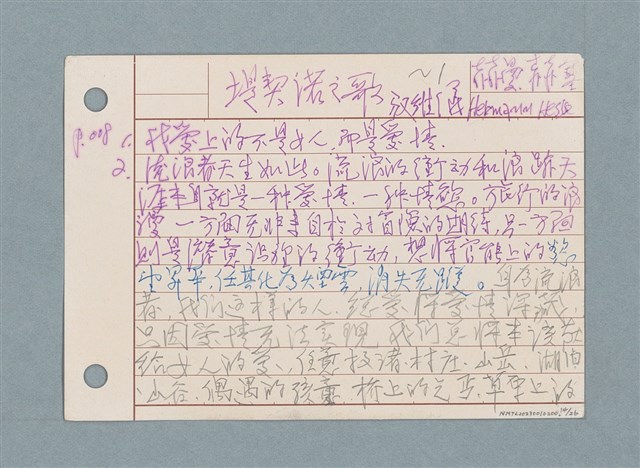 堤契諾之歌 ~1
Hermann Hesse
p.008 1. 我愛上的不是女人,而是愛情.
2. 流浪者天生如此。流浪的衝動和浪跡天
涯本身就是一種愛情,一種情慾。旅行的浪
漫,一方面無非來自於對冒險的期待,另一方面
則是潛意識裡的衝動,想將官能上的慾
望昇華,任其化為煙雲,消失無蹤。身為流浪
者,我們這樣的人
只因愛情無法實現,我們將本該獻
給女人的愛,任意投諸村莊、山岳、湖泊
山谷、偶遇的孩童、橋上的乞丐、草原上的